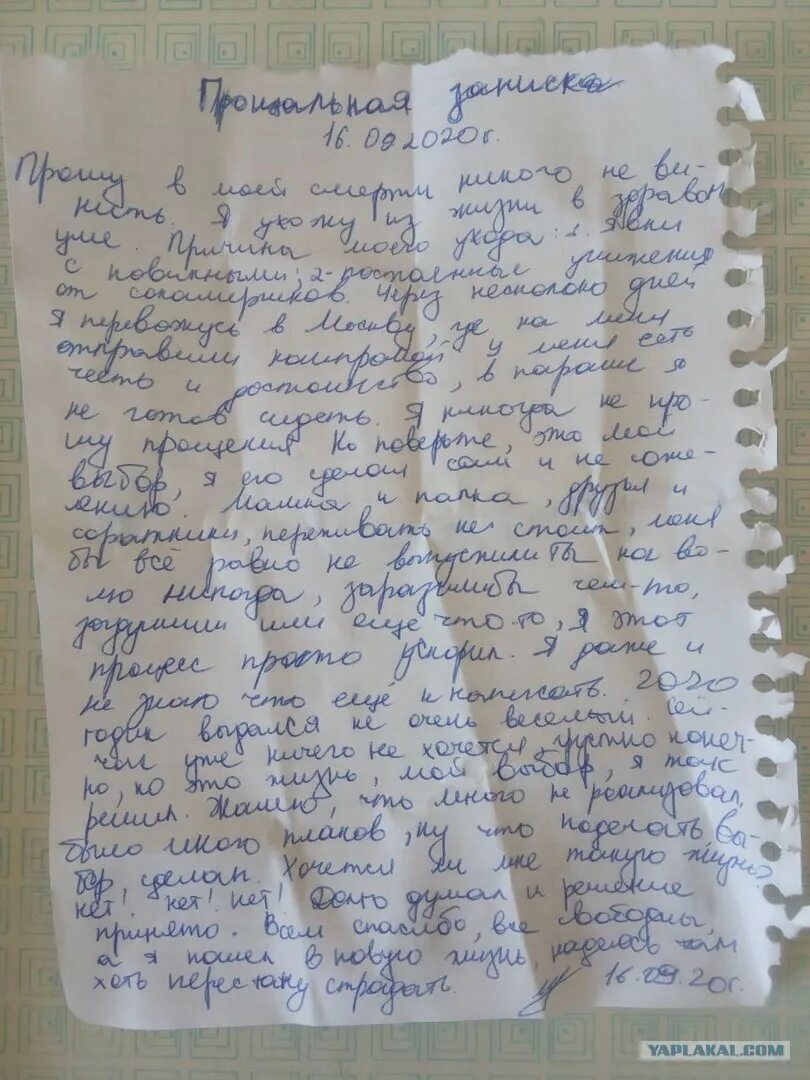 Прощальная записка
16.09.2020г.
Прошу в моей смерти никого не ви-
нить. Я ухожу из жизни в здравом
уме. Причина моего ухода: 1.
с повинными; 2- постоянные унижения
от сокамерников. Через несколько дней
я перевожусь в Москву, где на меня
отправили компромат у меня есть
честь и достоинство, в параше я
не готов сидеть. Я никогда не про-
шу прощения Но поверьте, это мой
выбор, я его сделал сам и не сожа-
лению. Мамка и папка, друзья и
соратники, переживать не стоит, меня
бы всё равно не выпустили на во-
лю никогда, заразили бы чем-то,
задушили или еще что-то, я этот
процес просто ускорил. Я даже и
не знаю что ещё и написать. 2020
годик выдался не очень веселый. Сей-
час уже ничего не хочется, грустно конеч-
но, но это жизнь, мой выбор, я так
решил. Жалею, что много не реализовал,
было много планов, ну что поделать вы-
бор сделан. Хочется ли мне такую жизнь?
нет! нет! нет! Долго думал и решение
принято. Всем спасибо, все свободны,
а я пошел в новую жизнь, надеюсь там
хоть перестану страдать. 16.09.20г.
YAPLAKAL.COM